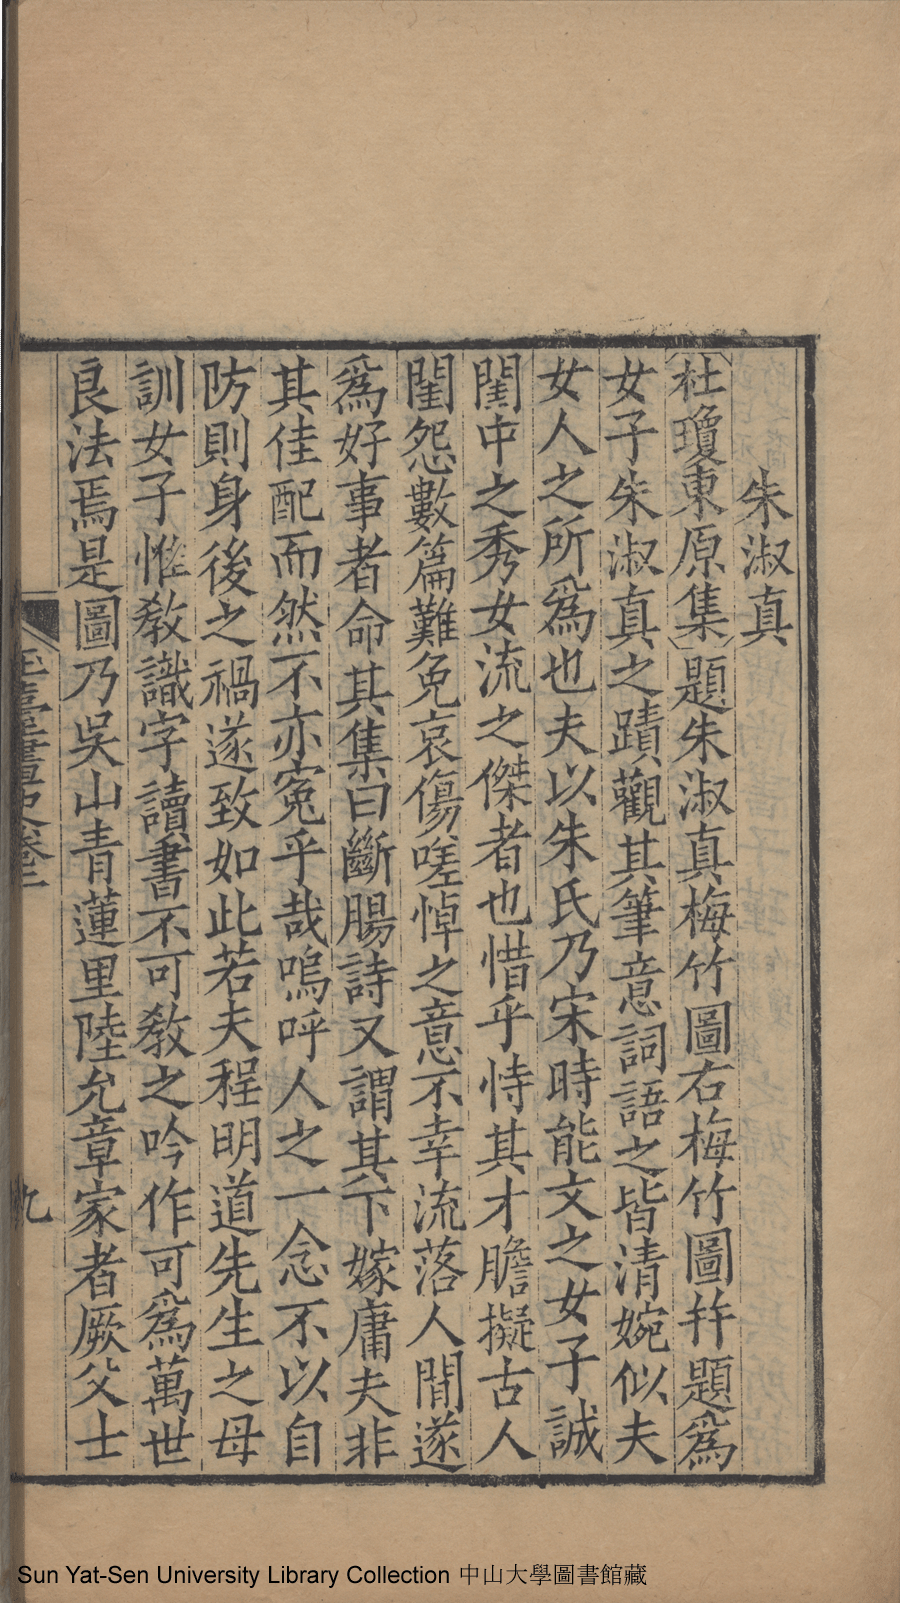 朱淑真
〔杜瓊東原集〕題朱淑真梅竹圖右梅竹圖幷題爲
女子朱淑真之蹟觀其筆意詞語之皆清婉似夫
女人之所爲也夫以朱氏乃宋時能文之女子誠
閨中之秀女流之傑者也惜乎恃其才膽擬古人
閨怨數篇難免哀傷嗟悼之意不幸流落人閒遂
爲好事者命其集曰斷腸詩又謂其下嫁庸夫非
其佳配而然不亦寃乎哉嗚呼人之一念不以自
防則身後之禍遂致如此若夫程明道先生之母
訓女子惟敎識字讀書不可敎之吟作可爲萬世
良法焉是圖乃吳山青蓮里陸允章家者厥父士
玉臺書史卷三
九
Sun Yat-Sen University Library Collection 中山大學圖書館藏